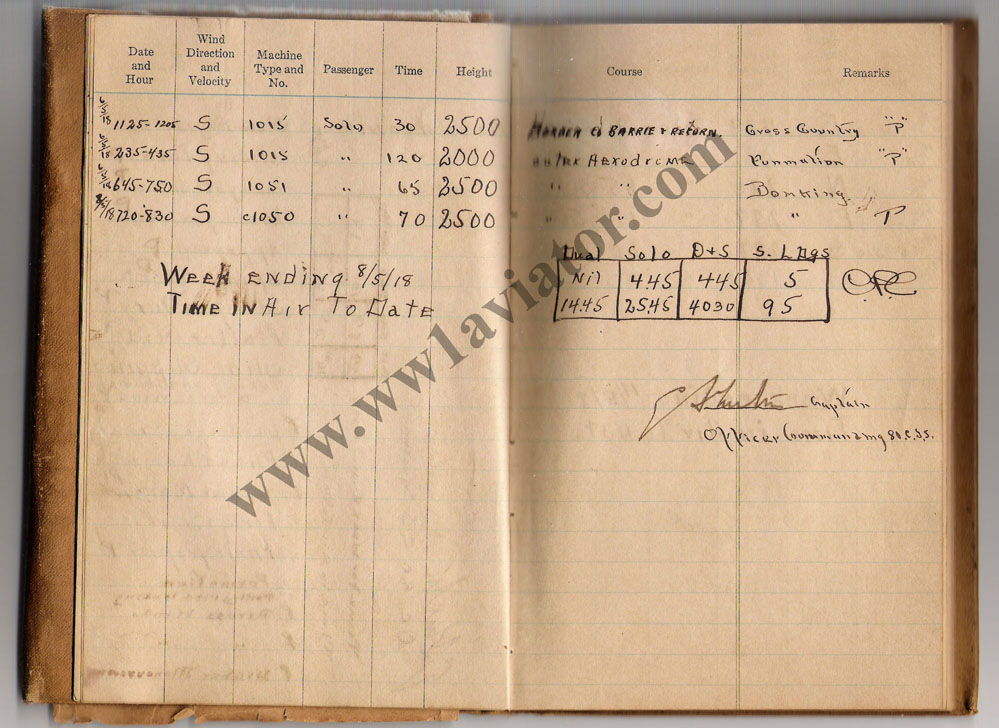 Date and Hour
Wind Direction and Velocity
Machine Type and No.
Passenger
Time
Height
Course
Remarks
6/5/18 1125-1205 S 1015 Solo 30 2500 BARRIE & RETURN. Cross Country "P"
6/5/18 235-435 S 1015 " 120 2000 Aerodrome Formation "P"
645-750 S 1051 " 65 2500 " " Bombing
8/5/18 720-830 S c1050 " 70 2500 " " " P
Dual Solo D+S S. Ldgs
Nil 445 445 5
14.45 25.45 4030 95
Week ending 8/5/18
Time in Air To Date
Captain
Officer Commanding 80.C.T.S.
www.ww1aviator.com